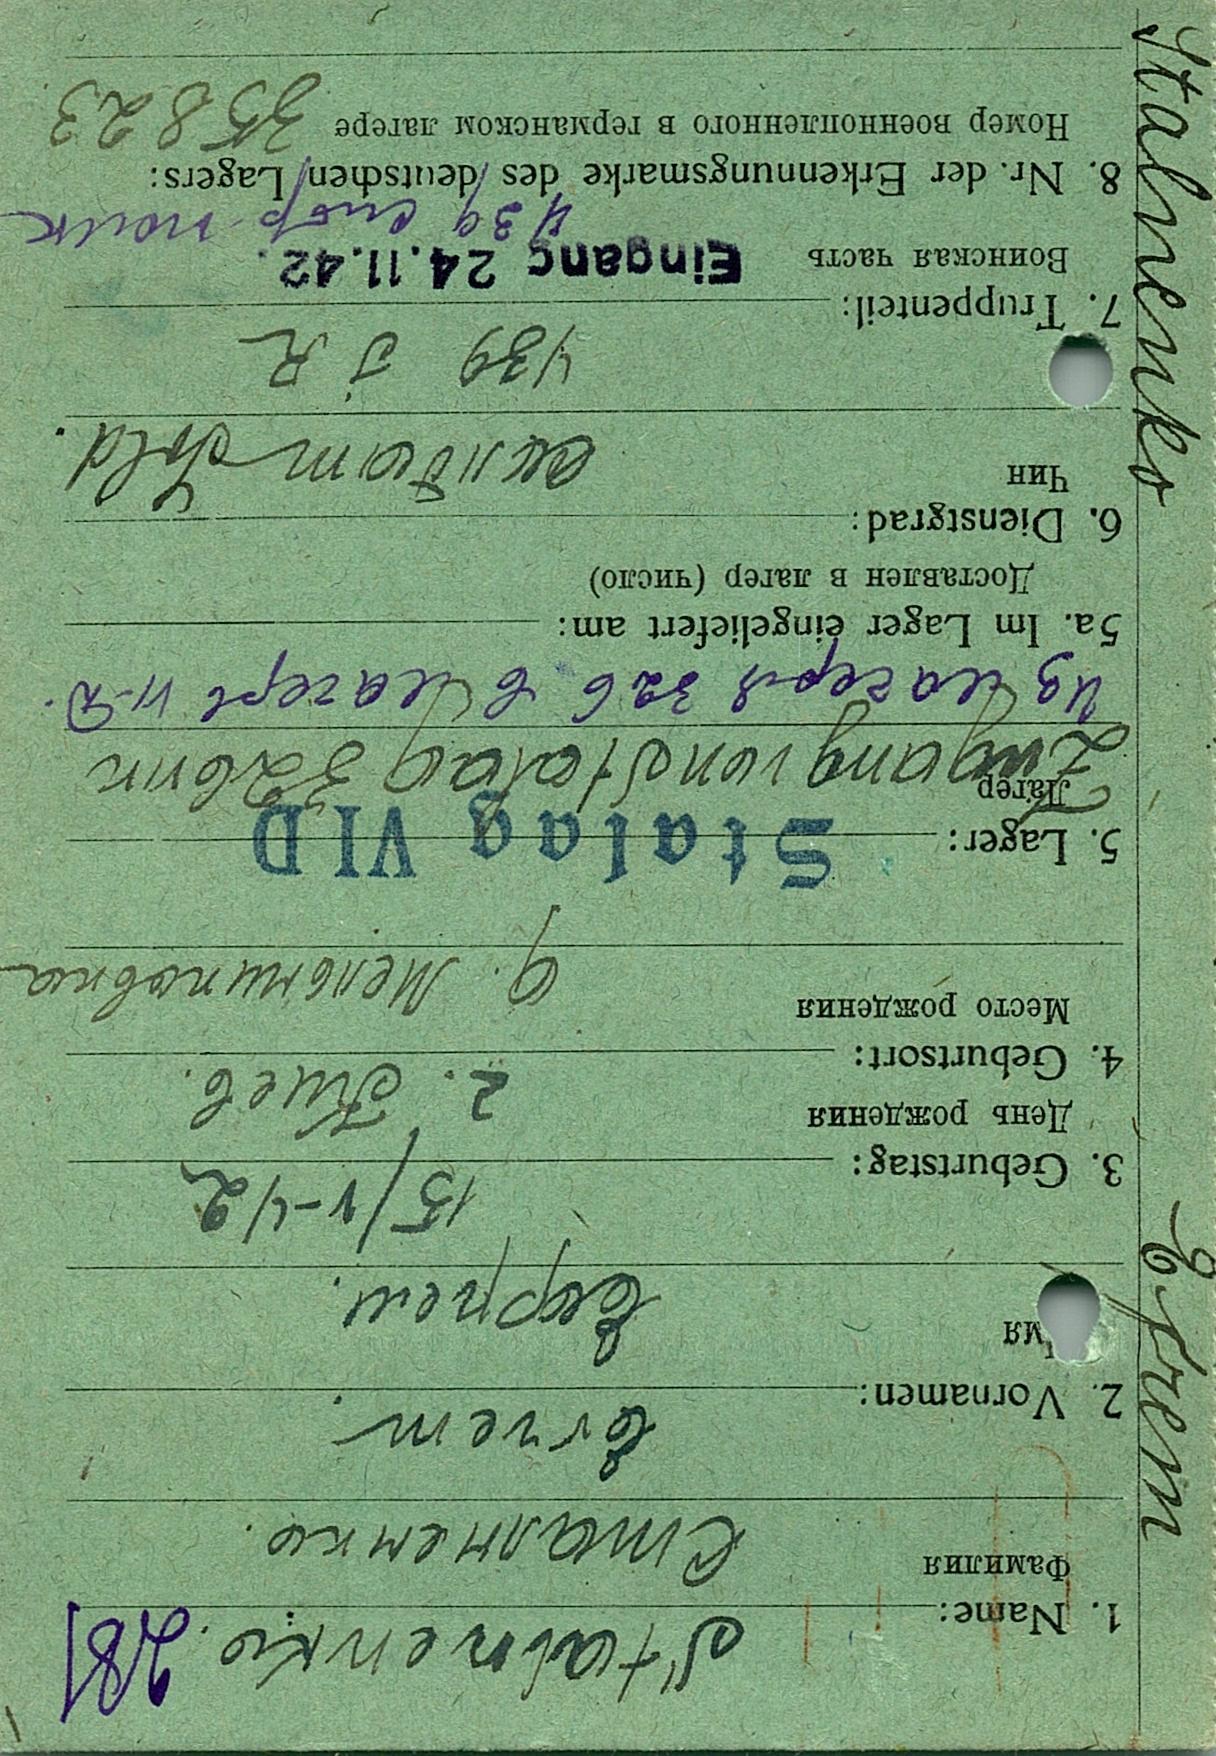 281
1. Name: Stalnenko.
Фамилия Сталненко.
Ervem.
2. Vornamen:
Имя Ефрем.
15/V-42
3. Geburtstag:
День рождения г. Киев.
4. Geburtsort:
Место рождения д. Мельниковка
5. Lager: Stalag VI D
Лагер Zugang von Stalag 326
Из лагеря 326 в лагерь VI-D.
5a. Im Lager eingeliefert am:
Доставлен в лагер (число)
6. Dienstgrad:
Чин солдат Sold.
439 J R
7. Truppenteil:
Воинская часть Eingang 24.11.42.
439 стр. полк
8. Nr. der Erkennungsmarke des /deutschen/ Lagers:
Номер военнопленного в германском лагере 35823
Stalnenko Efrem